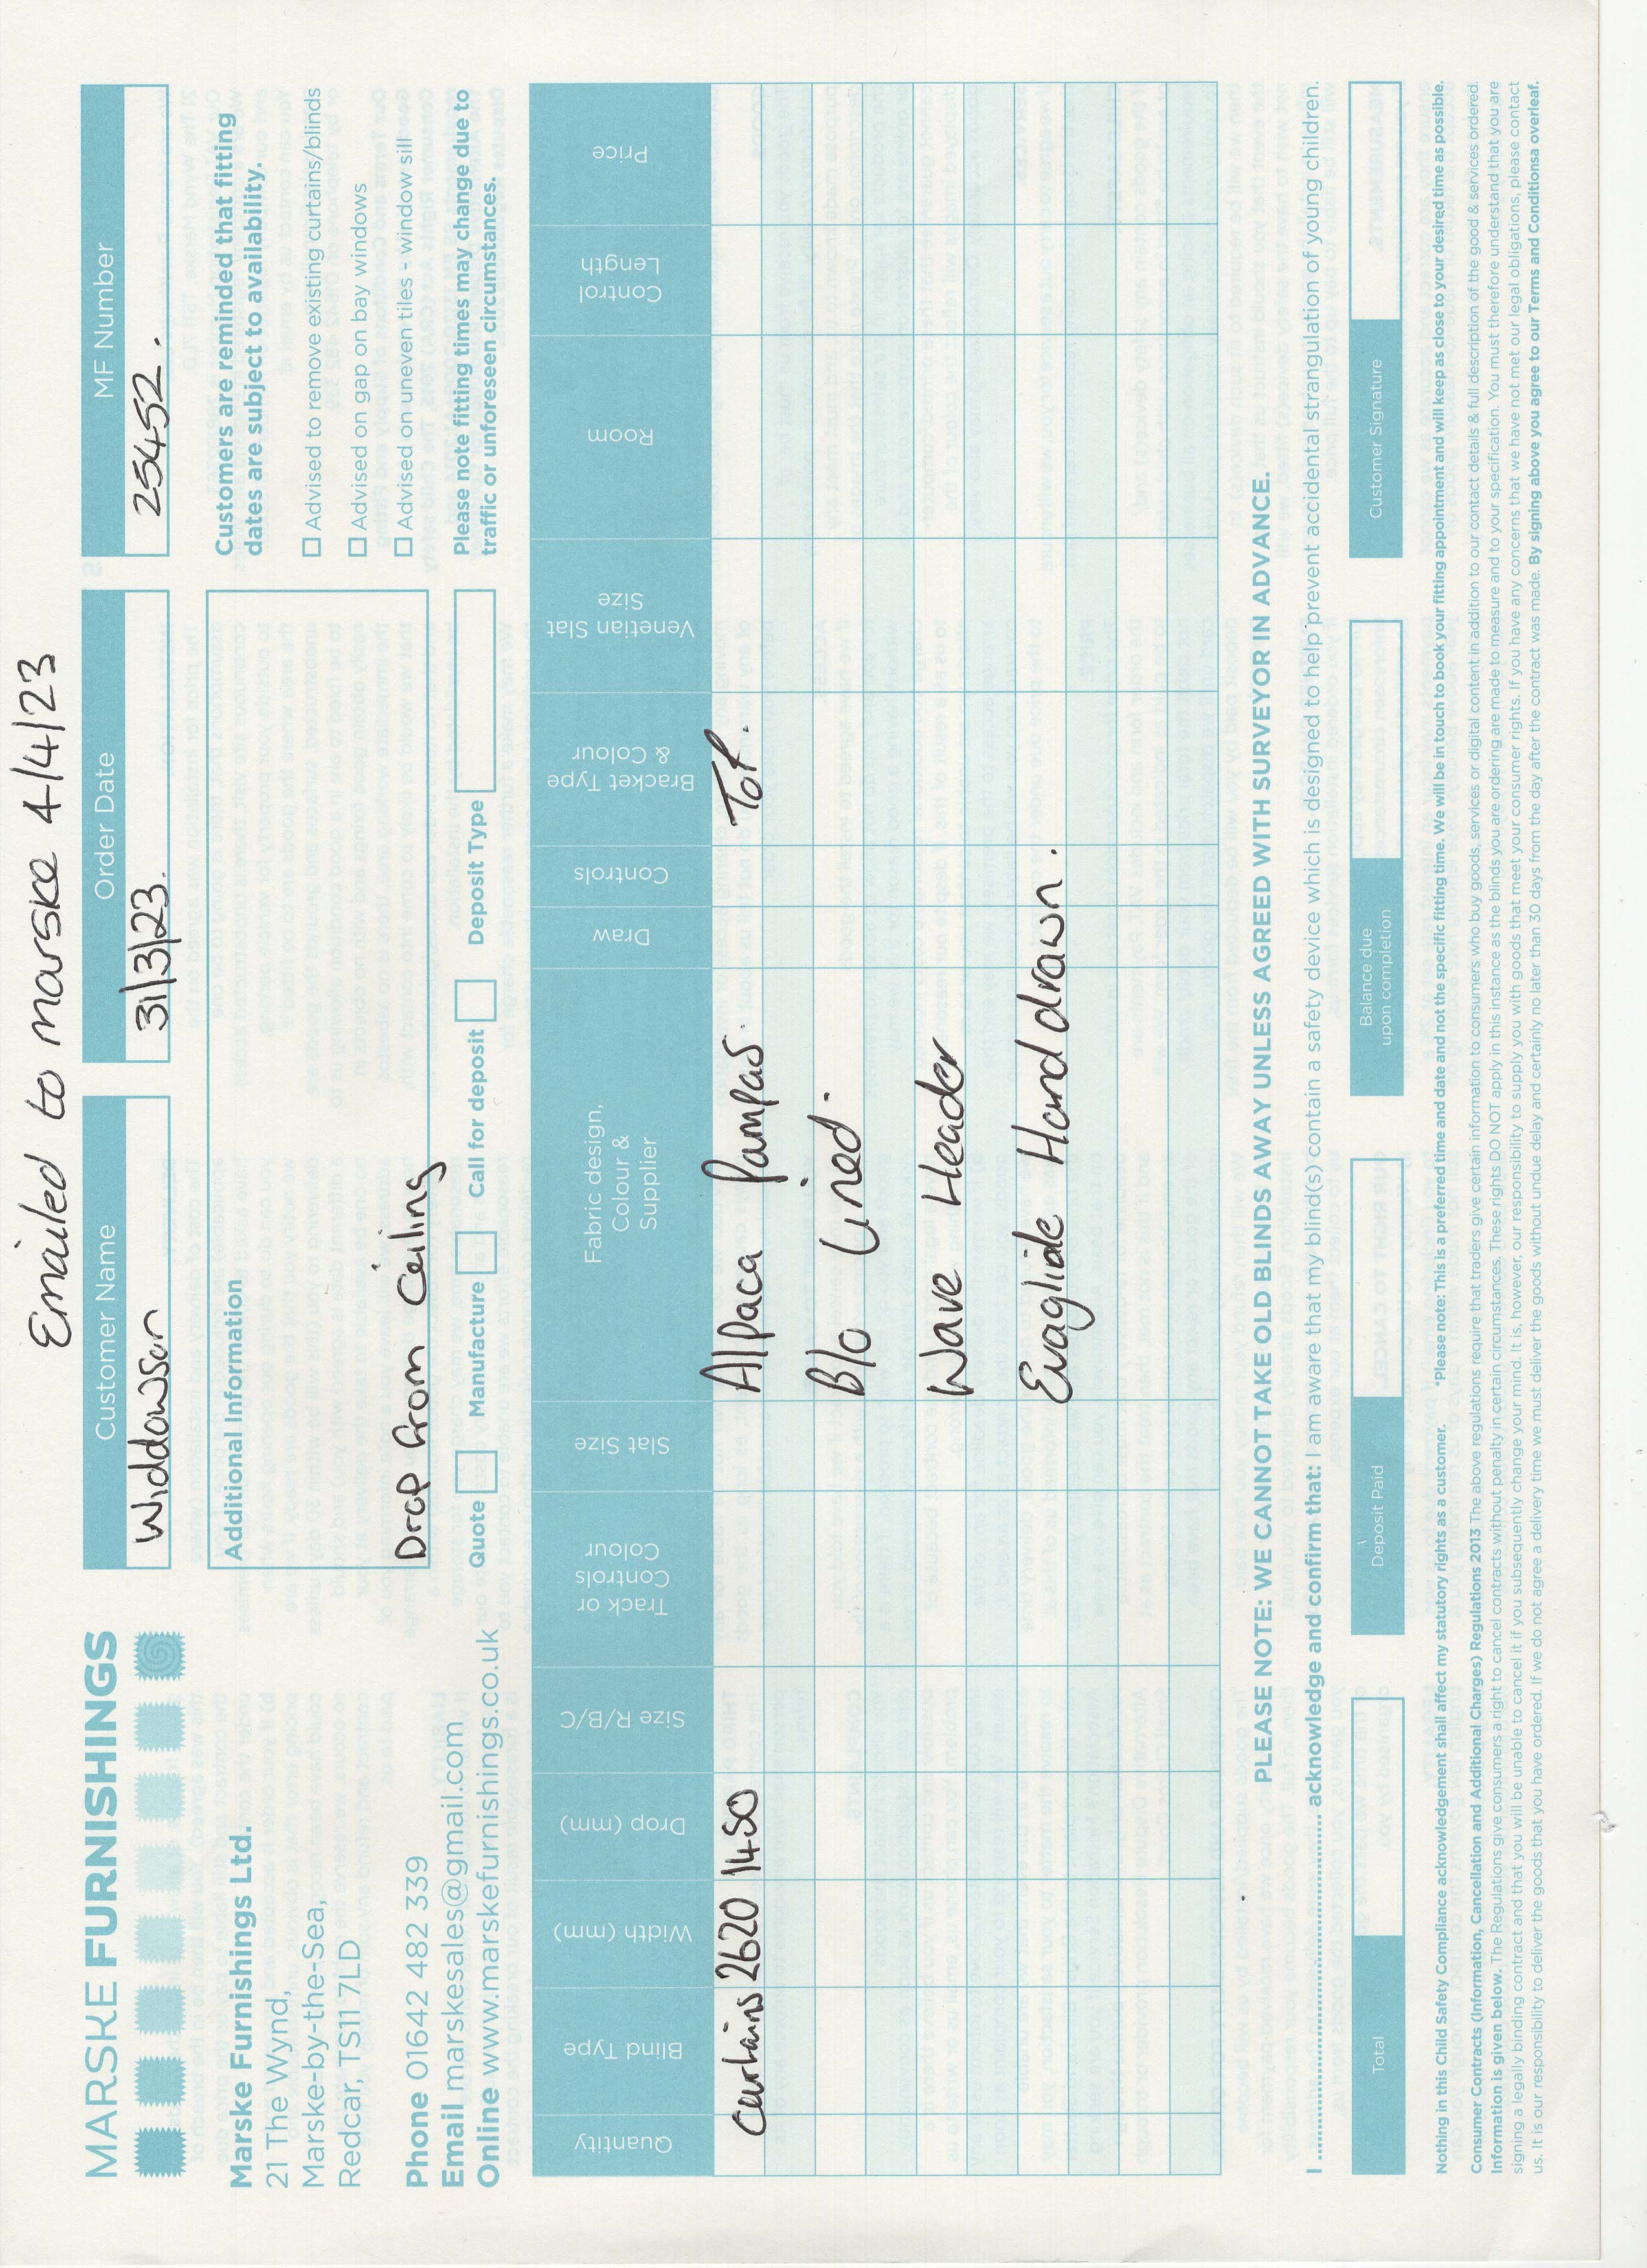 Emailed to marske 4/4/23
MARSKE FURNISHINGS
Marske Furnishings Ltd.
21 The Wynd,
Marske-by-the-Sea,
Redcar, TS11 7LD
Phone 01642 482 339
Email marskesales@gmail.com
Online www.marskefurnishings.co.uk
Customer Name
Widdowson
Order Date
31/3/23.
MF Number
25452.
Additional Information
Drop from Ceiling
Quote
Manufacture
Call for deposit
Deposit Type
Customers are reminded that fitting
dates are subject to availability.
Advised to remove existing curtains/blinds
Advised on gap on bay windows
Advised on uneven tiles - window sill
Please note fitting times may change due to
traffic or unforeseen circumstances.
Quantity
Blind Type
Width (mm)
Drop (mm)
Size R/B/C
Track or
Controls
Colour
Slat Size
Fabric design,
Colour &
Supplier
Draw
Controls
Bracket Type
& Colour
Venetian Slat
Size
Room
Control
Length
Price
Curtains 2620 1450 Alpaca Pampas. Tof.
B/o Lined.
Wave Header
Evaglide Hand drawn.
PLEASE NOTE: WE CANNOT TAKE OLD BLINDS AWAY UNLESS AGREED WITH SURVEYOR IN ADVANCE.
I ........................................ acknowledge and confirm that: I am aware that my blind(s) contain a safety device which is designed to help prevent accidental strangulation of young children.
Total
Deposit Paid
Balance due
upon completion
Customer Signature
Nothing in this Child Safety Compliance acknowledgement shall affect my statutory rights as a customer. *Please note: This is a preferred time and date and not the specific fitting time. We will be in touch to book your fitting appointment and will keep as close to your desired time as possible.
Consumer Contracts (Information, Cancellation and Additional Charges) Regulations 2013 The above regulations require that traders give certain information to consumers who buy goods, services or digital content in addition to our contact details & full description of the good & services ordered.
Information is given below. The Regulations give consumers a right to cancel contracts without penalty in certain circumstances. These rights DO NOT apply in this instance as the blinds you are ordering are made to measure and to your specification. You must therefore understand that you are
signing a legally binding contract and that you will be unable to cancel it if you subsequently change your mind. It is, however, our responsibility to supply you with goods that meet your consumer rights. If you have any concerns that we have not met our legal obligations, please contact
us. It is our responsibility to deliver the goods that you have ordered. If we do not agree a delivery time we must deliver the goods without undue delay and certainly no later than 30 days from the day after the contract was made. By signing above you agree to our Terms and Conditionsa overleaf.